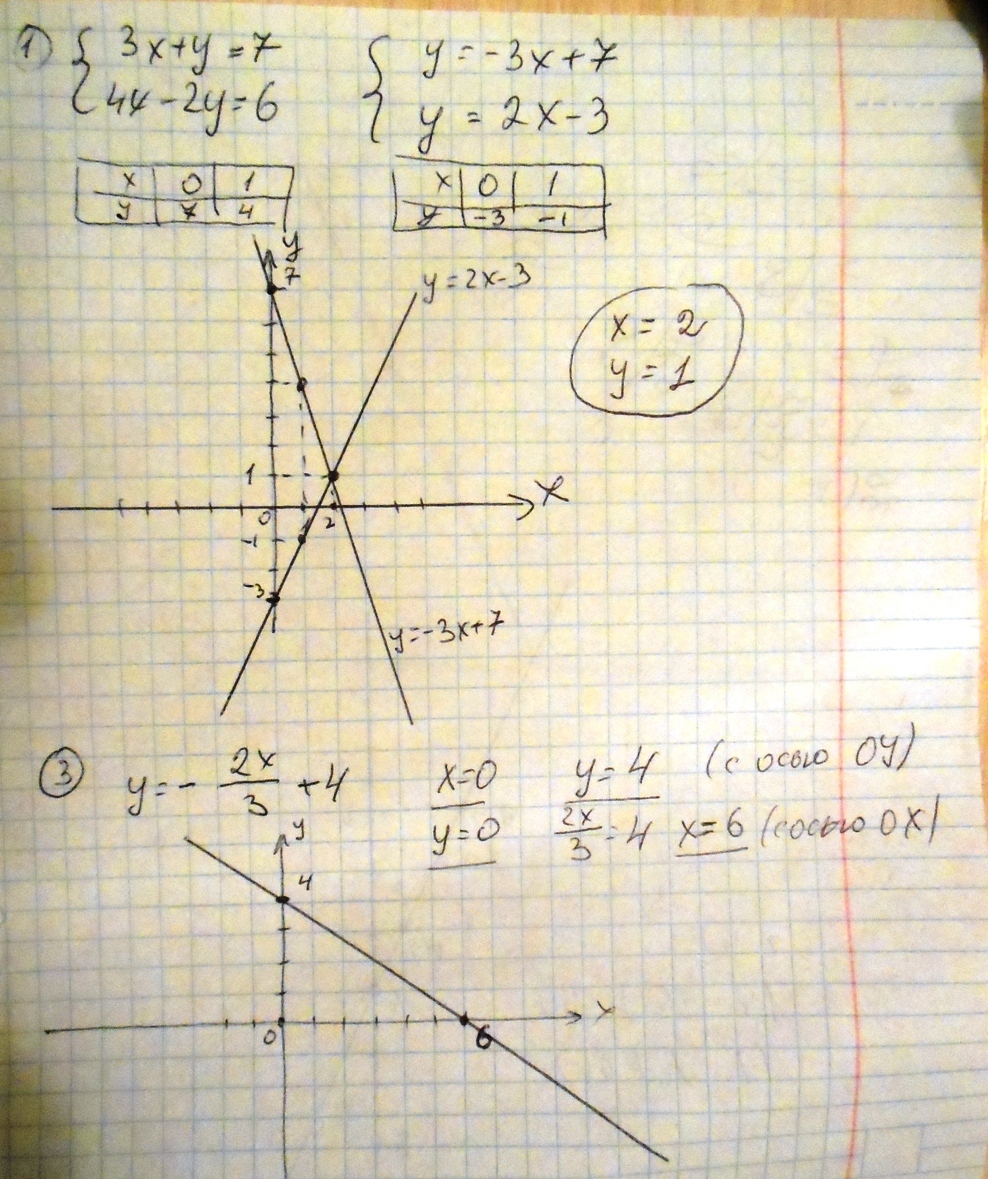 1) { 3x+y=7 { y=-3x+7
4x-2y=6 y = 2x-3
x 0 1 x 0 1
y 7 4 y -3 -1
y
7
y=2x-3
x= 2
y= 1
1
x
0 1 2
-1
-3
y=-3x+7
3 y=- 2x/3 +4 x=0 y=4 (с осью OY)
y=0 2x/3=4 x=6 (с осью OX)
y
4
x
0 6